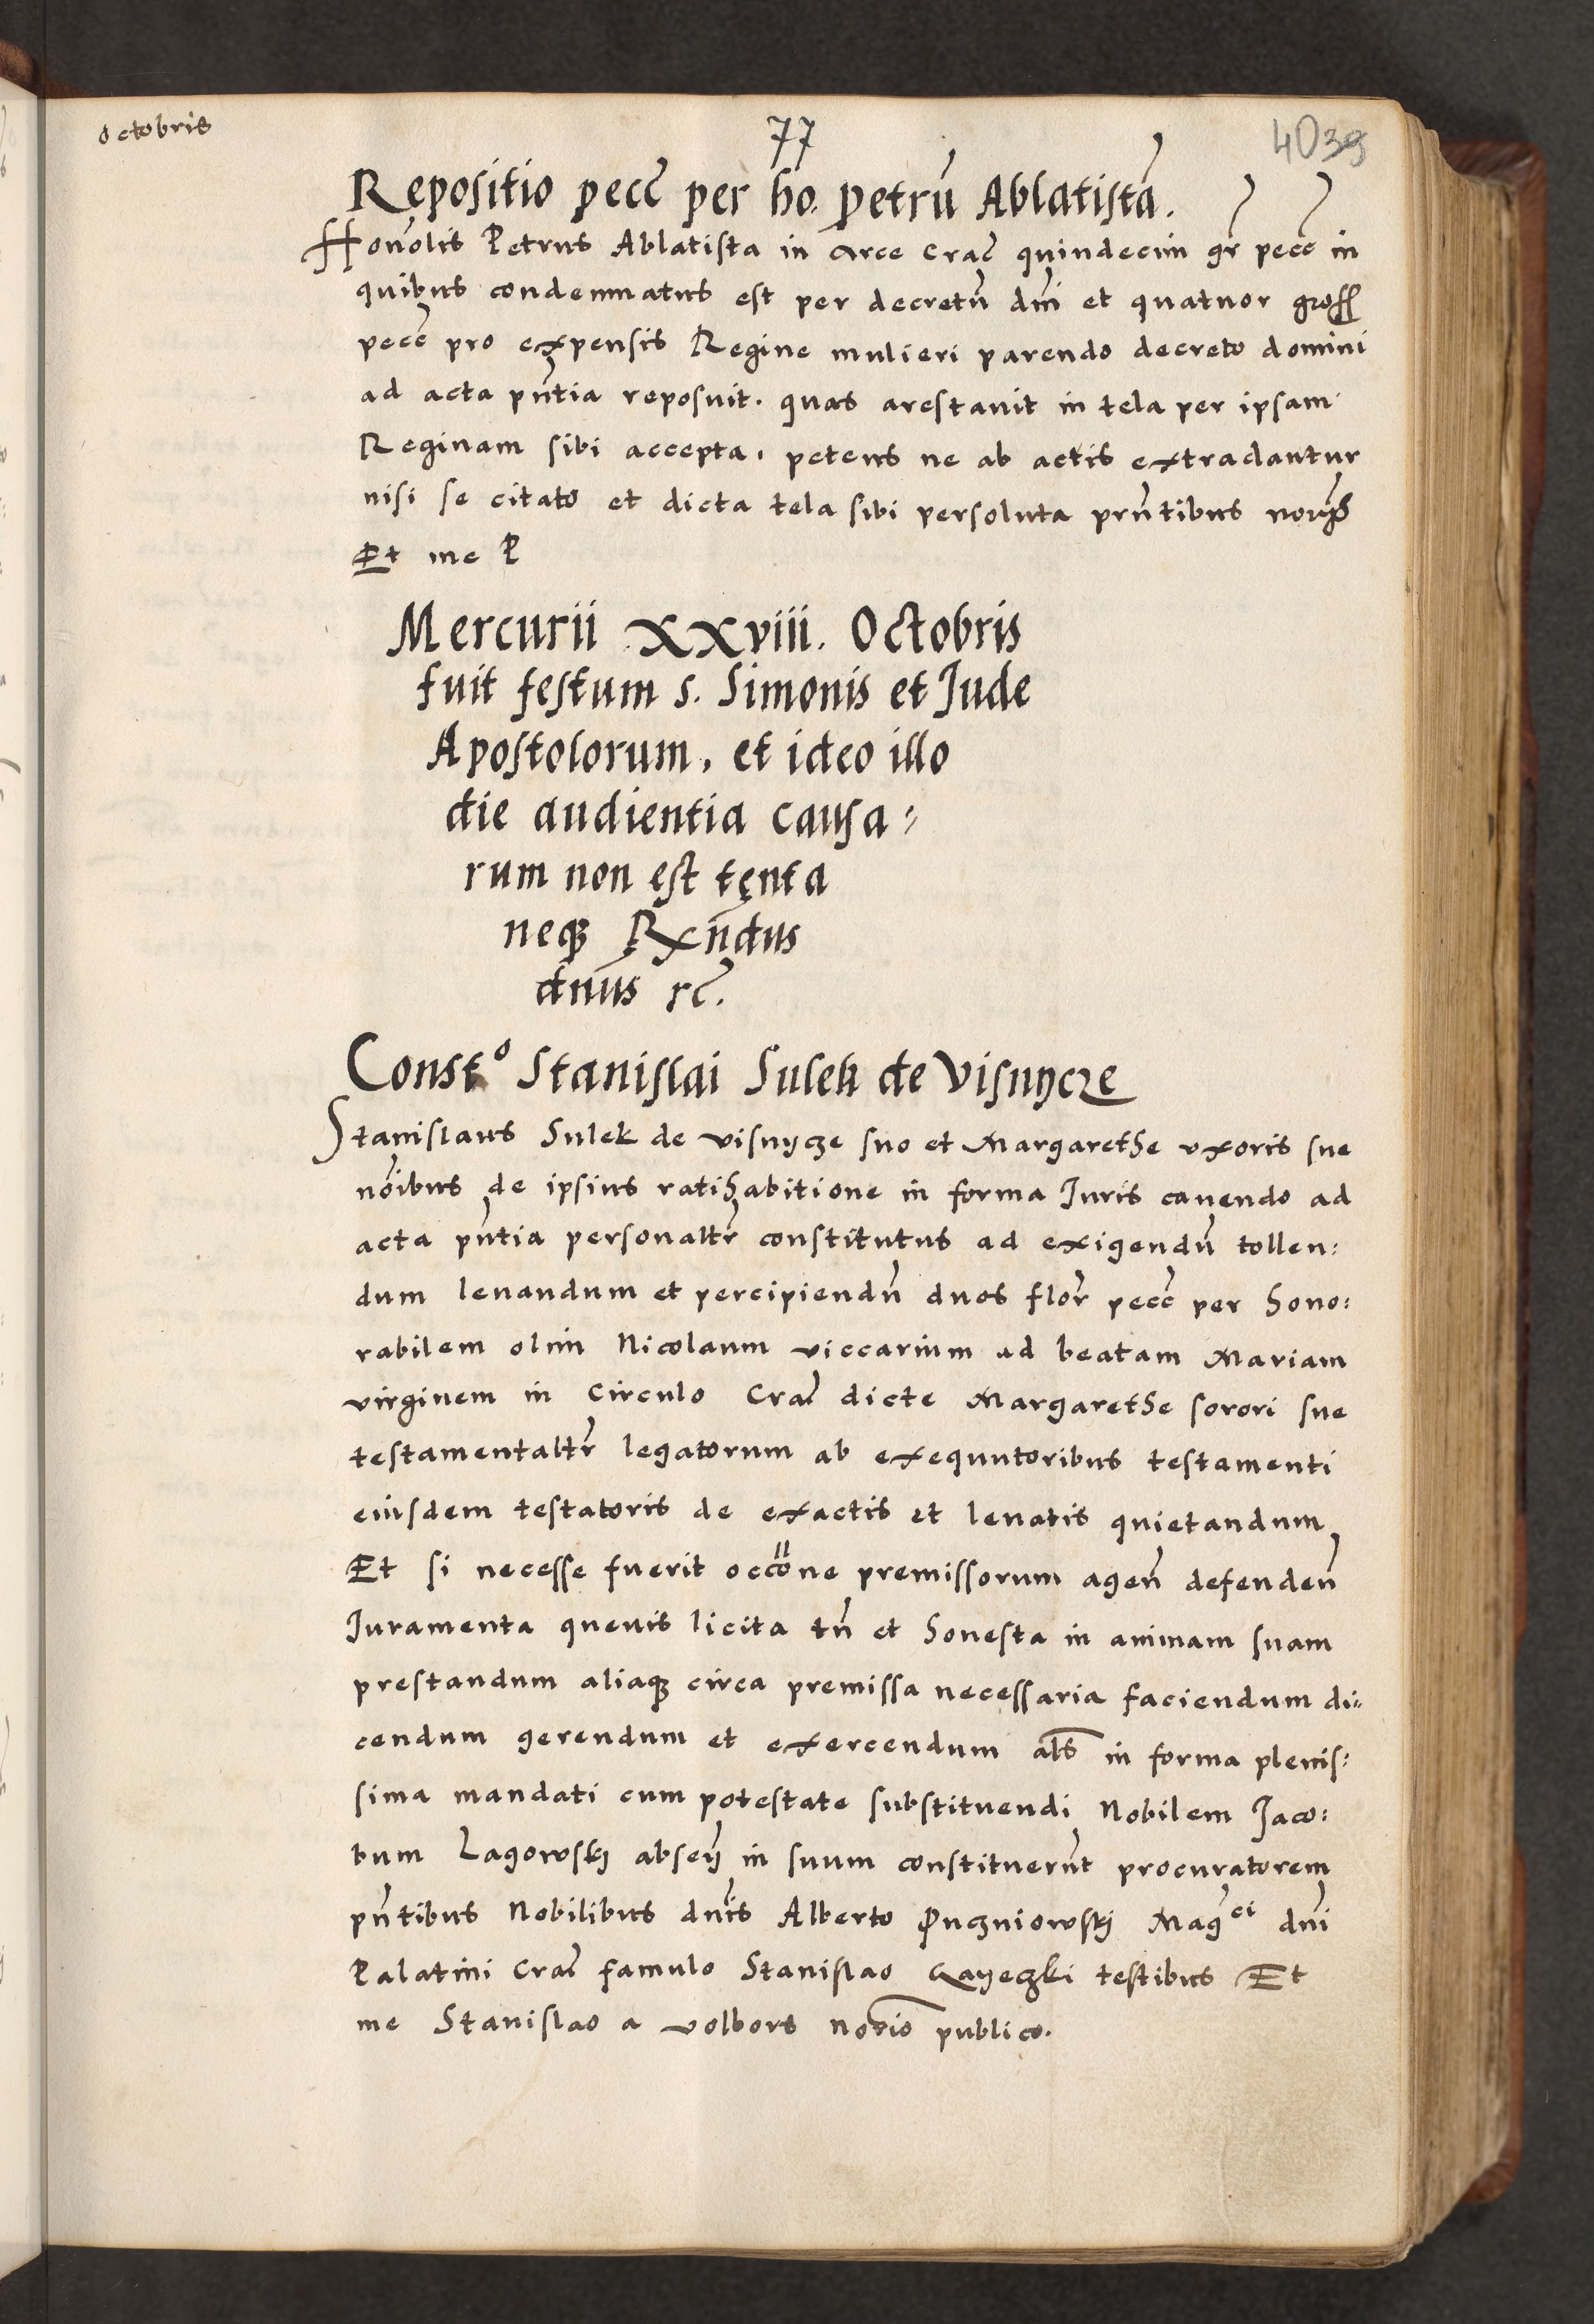 Octobris
77
4039
Repositio pecc̃ per ho. Petrũ Ablatistã.
Honõlis Petrus Ablatista in Arce Crac̃ quindecim gr̃ pecc̃ in
quibus condemnatus est per decretũ dm̃i et quatuor gross
pecc̃ pro expensis Regine mulieri parendo decreto domini
ad acta pñtia reposuit. quas arestauit in tela per ipsam
Reginam sibi accepta, petens ne ab actis extradantur
nisi se citato et dicta tela sibi persoluta prñtibus
Et me P
Mercurii XXviii. Octobris
fuit festum s. Simonis et Jude
Apostolorum, et ideo illo
die audientia causa⸗
rum non est tenta
neqȝ Rxñdus
dñus rc̃.
Constᵒ Stanislai Sulek de Visnycze
Stanislaus Sulek de visnycze suo et Margarethe uxoris sue
nõibus de ipsius ratihabitione in forma Juris cauendo ad
acta pñtia personaltr̃ constitutus ad exigendũ tollen:
dum leuandum et percipiendũ duos flor̃ pecc̃ per hono:
rabilem olim Nicolaum viccarium ad beatam Mariam
virginem in Circulo Crac̃ dicte Margarethe sorori sue
testamentaltr̃ legatorum ab exequutoribus testamenti
eiusdem testatoris de exactis et leuatis quietandum
Et si necesse fuerit occõne premissorum ageñ defendeñ
Juramenta queuis licita tñ et honesta in animam suam
prestandum aliaqȝ circa premissa necessaria faciendum di⸗
cendum gerendum et exercendum als̃ in forma plenis:
sima mandati cum potestate substituendi Nobilem Jaco:
bum Lagowskj abseñ in suum constituerũt procuratorem
pñtibus Nobilibus dñis Alberto Puczniowskj Mag̃ci dñi
Palatini Crac̃ famulo Stanislao Gayeczki testibus Et
me Stanislao a volbors no͠rio publico.